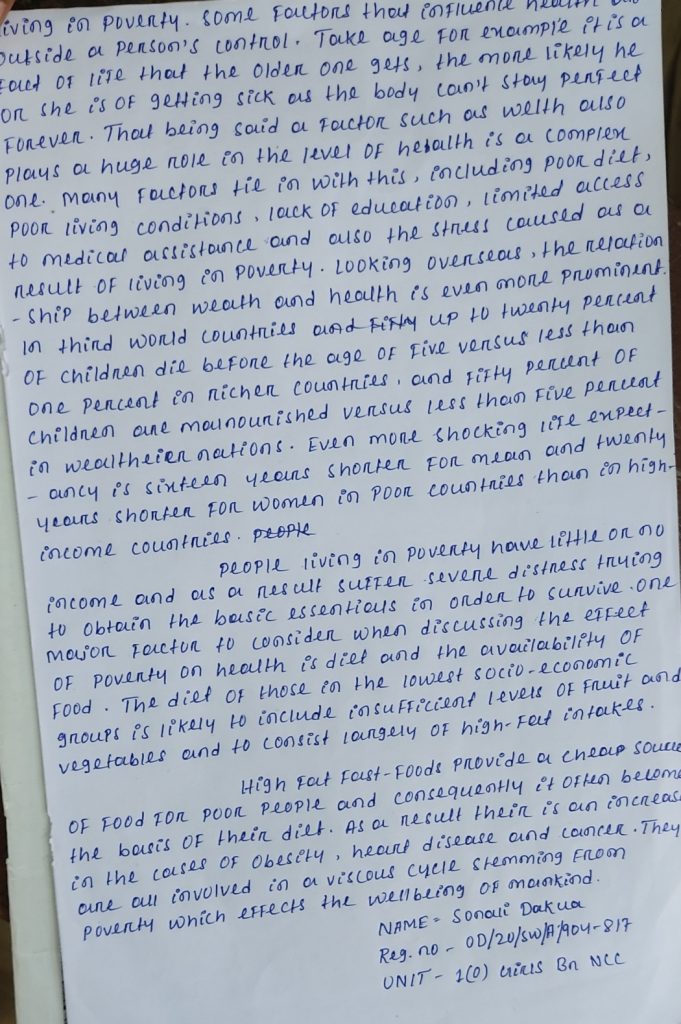 living in poverty. Some Factors that influence health
outside a person's control. Take age For example it is a
Fact OF life that the older one gets, the more likely he
or she is OF getting sick as the body can't stay perfect
Forever. That being said a Factor such as welth also
plays a huge role in the level OF hebalth is a complex
one. Many Factors tie in with this, including poor diet,
poor living conditions, lack OF education, limited access
to medical assistance and also the stress caused as a
result OF living in poverty. Looking overseas, the relation
- ship between weath and health is even more prominent.
In third world countries and Fifty up to twenty percent
OF children die before the age OF Five versus less than
one percent in richer countries, and Fifty percent OF
children are malnourished versus less than Five percent
in wealtheier nations. Even more shocking life expect-
- ancy is sixteen years shorter For mean and twenty
years shorter For women in poor countries than in high-
income countries. people
people living in poverty have little or no
income and as a result suffer severe distress trying
to obtain the basic essentials in order to survive. One
major Factor to consider when discussing the effect
OF poverty on health is diet and the availability OF
Food. The diet OF those in the lowest socio-economic
groups is likely to include insufficient levels OF Fruit and
vegetables and to consist largely OF high-Fat intakes.
High Fat Fast-Foods provide a cheap source
OF Food For poor people and consequently it often become
the basis OF their diet. As a result their is an increas
in the cases OF obesity, heart disease and cancer. They
are all involved in a viscous cycle stemming From
poverty which effects the wellbeing OF mankind.
NAME - Sonali Dakua
Reg. no - OD/20/SW/A/904-817
UNIT - 1(O) Girls Bn NCC